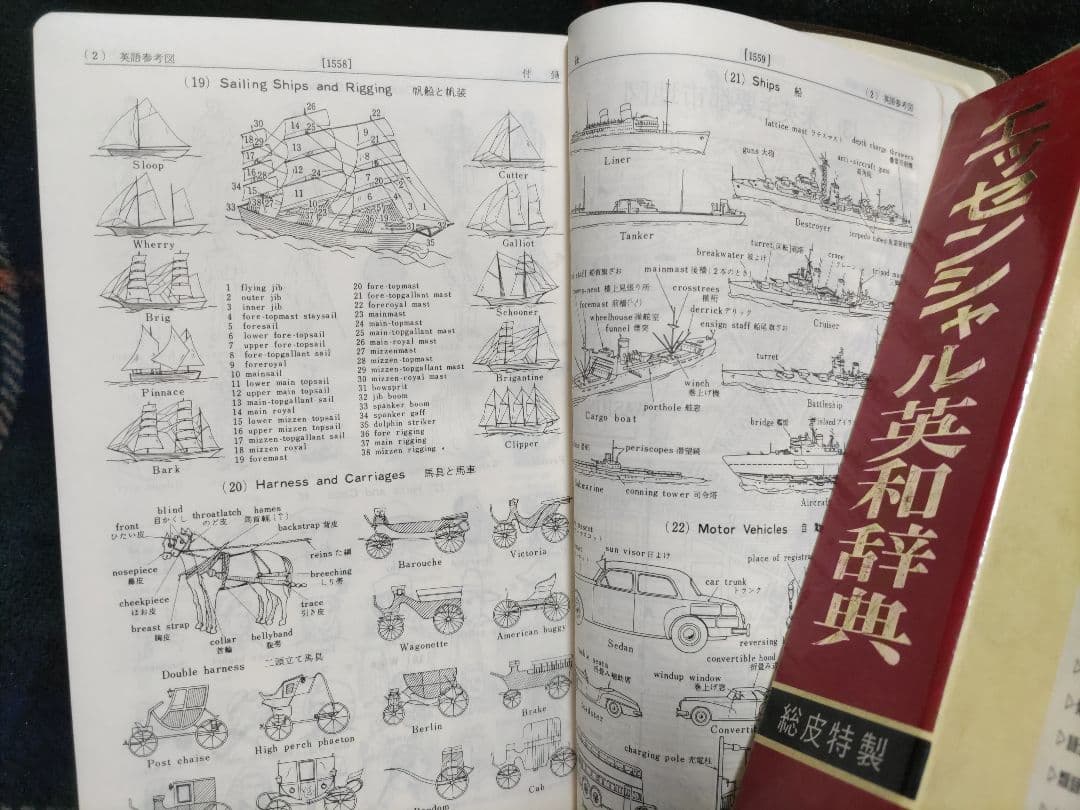 (2) 英語参考図
[1558]
付 録
(19) Sailing Ships and Rigging 帆船と帆装
Sloop
Wherry
Brig
Pinnace
Bark
Cutter
Galliot
Schooner
Brigantine
Clipper
1 flying jib
2 outer jib
3 inner jib
4 fore-topmast staysail
5 foresail
6 lower fore-topsail
7 upper fore-topsail
8 fore-topgallant sail
9 foreroyal
10 mainsail
11 lower main topsail
12 upper main topsail
13 main-topgallant sail
14 main royal
15 lower mizzen topsail
16 upper mizzen topsail
17 mizzen-topgallant sail
18 mizzen royal
19 foremast
20 fore-topmast
21 fore-topgallant mast
22 foreroyal mast
23 mainmast
24 main-topmast
25 main-topgallant mast
26 main-royal mast
27 mizzenmast
28 mizzen-topmast
29 mizzen-topgallant mast
30 mizzen-royal mast
31 bowsprit
32 jib boom
33 spanker boom
34 spanker gaff
35 dolphin striker
36 fore rigging
37 main rigging
38 mizzen rigging
(20) Harness and Carriages 馬具と馬車
blind
目かくし
throatlatch
のど皮
hames
front
ひたい皮
backstrap 背皮
reins た綱
breeching
しり帯
trace
引き皮
nosepiece
鼻皮
cheekpiece
ほお皮
breast strap
胸皮
collar
首輪
bellyband
腹帯
Double harness 二頭立て馬具
Barouche
Victoria
Wagonette
American buggy
Post chaise
High perch phaeton
Berlin
Brake
Cab
[1559]
(2) 英語参考図
(21) Ships 船
Liner
Tanker
lattice mast ラチスマスト
depth charge throwers
guns 大砲
anti-aircraft guns
高角砲
Destroyer
breakwater 波よけ
turret
crane
クレーン
Cruiser
mainmast 後檣(2本のとき)
crosstrees
檣桁
檣上見張り所
foremast 前檣
wheelhouse 操舵室
funnel 煙突
derrick デリック
ensign staff 船尾旗ざお
winch
巻上げ機
porthole 舷窓
Cargo boat
turret
Battleship
bridge 艦橋
periscopes 潜望鏡
conning tower 司令塔
(22) Motor Vehicles
sun visor 日よけ
car trunk
トランク
Sedan
reversing
convertible hood
windup window
巻上げ窓
charging pole 充電柱
エッセンシャル英和辞典
総皮特製